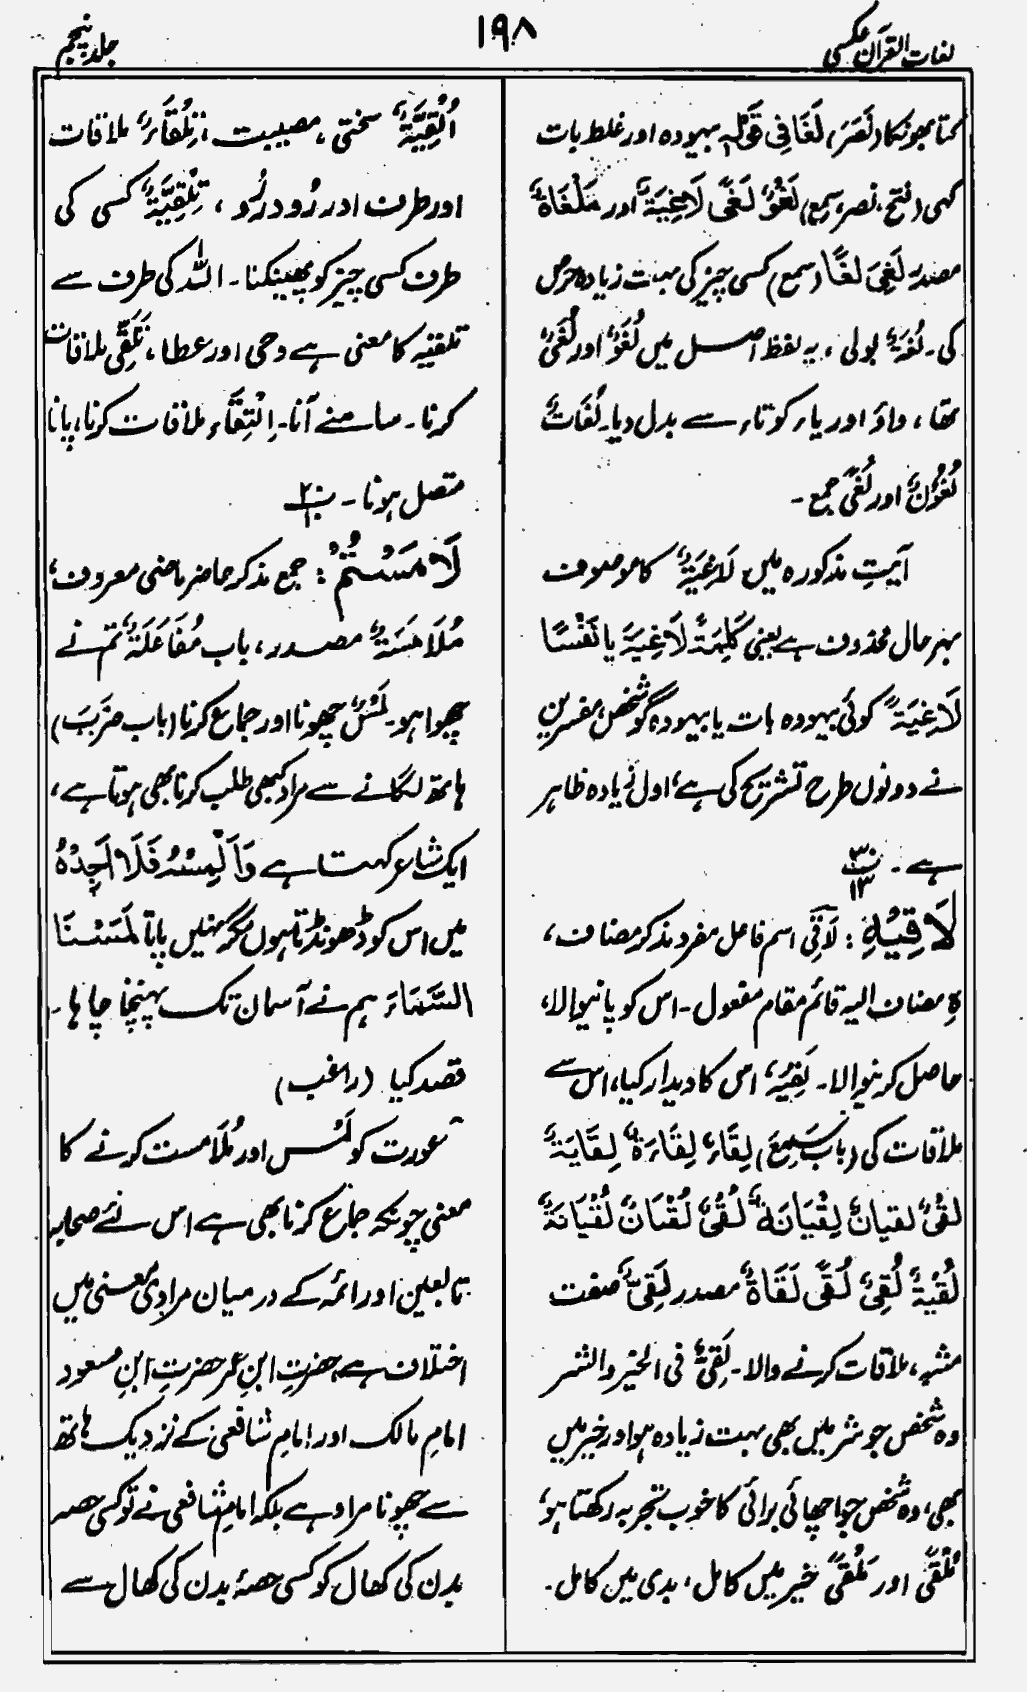 لغات القرآن عکسی
۱۹۸
جلد پنجم
کتا بھونکا (نَصَرَ) لَغَا فِی قَوْلِہٖ بیہودہ اور غلط بات
کہی (فتح، نصر، سمع) لَغْوٌ لَغًی لَاغِیَةٌ اور مَلْغَاةٌ
مصدر لَغِیَ لَغًا (سمع) کسی چیز کی بہت زیادہ حرص
کی۔ لُغَةٌ بولی، یہ لفظ اصل میں لُغَوٌ اور لُغَیٌ
تھا، واؤ اور یاء کو تاء سے بدل دیا۔ لُغَاتٌ
لُغُوْنَ اور لُغًی جمع۔
آیتِ مذکورہ میں لَاغِیَةٌ کا موصوف
بہر حال محذوف ہے یعنی کَلِمَةً لَاغِیَةً یا نَفْسًا
لَاغِیَةً کوئی بیہودہ بات یا بیہودہ گو شخص مفسرین
نے دونوں طرح تشریح کی ہے، اول زیادہ ظاہر
ہے۔ پ۳۰ ۱۳
لَاقِیْہِ: لَاقِی اسم فاعل مفرد مذکر مضاف،
ہِ مضاف الیہ قائم مقام مفعول۔ اس کو پانیوالا،
حاصل کرنیوالا۔ لَقِیَہٗ، اس کا دیدار کیا، اس سے
ملاقات کی (باب سَمِعَ) لِقَاءٌ لِقَاءَةٌ لِقَایَةٌ
لِقْیٌ لقیانٌ لِقْیَانَةٌ لُقِیٌّ لُقْیَانٌ لُقْیَانَةٌ
لُقْیَةٌ لُقِیٌ لُقًی لَقَاةٌ مصدر لَقِیٌّ صفت
مشبہ، ملاقات کرنے والا۔ لَقِیٌّ فی الخیر والشر
وہ شخص جو شر میں بھی بہت زیادہ ہو اور خیر میں
بھی، وہ شخص جو اچھائی برائی کا خوب تجربہ رکھتا ہو
مُلْقًی اور مَلْقِیٌّ خیر میں کامل، بدی میں کامل۔
اُلْقِیَّةٌ سختی، مصیبت، تِلْقَاءٌ ملاقات
اور طرف اور رُو در رُو، تِلْقِیَّةٌ کسی کی
طرف کسی چیز کو پھینکنا۔ اللہ کی طرف سے
تلقیہ کا معنی ہے وحی اور عطا، تَلَقِّی ملاقات
کرنا۔ سامنے آنا۔ اِلْتِقَاء ملاقات کرنا، پانا
متصل ہونا۔ پ۲۰
لَامَسْتُمْ: جمع مذکر حاضر ماضی معروف،
مُلَامَسَةٌ مصدر، باب مُفَاعَلَةٌ تم نے
چھوا ہو۔ لَمْسٌ چھونا اور جماع کرنا (باب ضَرَبَ)
ہاتھ لگانے سے مراد کبھی طلب کرنا بھی ہوتا ہے،
ایک شاعر کہتا ہے وَاَلْمِسُہٗ فَلَا اَجِدُہٗ
میں اس کو ڈھونڈتا ہوں مگر نہیں پاتا لَمَسْنَا
السَّمَاءَ ہم نے آسمان تک پہنچنا چاہا۔
قصد کیا (راغب)
عورت کو لَمْس اور مُلَامست کرنے کا
معنی چونکہ جماع کرنا بھی ہے اس لئے صحابہ
تابعین اور ائمہ کے درمیان مرادی معنی میں
اختلاف ہے، حضرتِ ابنِ عمر حضرتِ ابنِ مسعود
امامِ مالک اور امامِ شافعی کے نزدیک ہاتھ
سے چھونا مراد ہے بلکہ امامِ شافعی نے تو کسی حصہ
بدن کی کھال کو کسی حصۂ بدن کی کھال سے